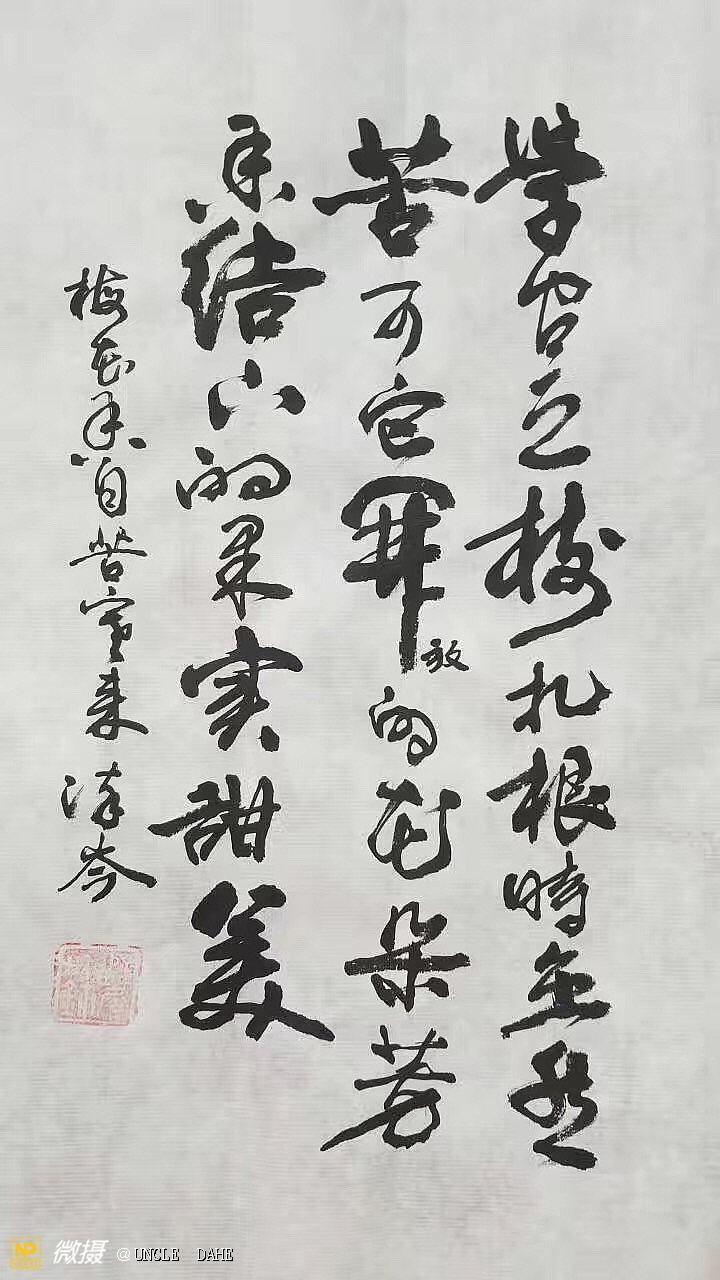 学之树扎根時虽然
苦可它開放的花朵芳
香结出的果实甜美
梅花香自苦寒来
NP 微摄 @UNCLE DAHE